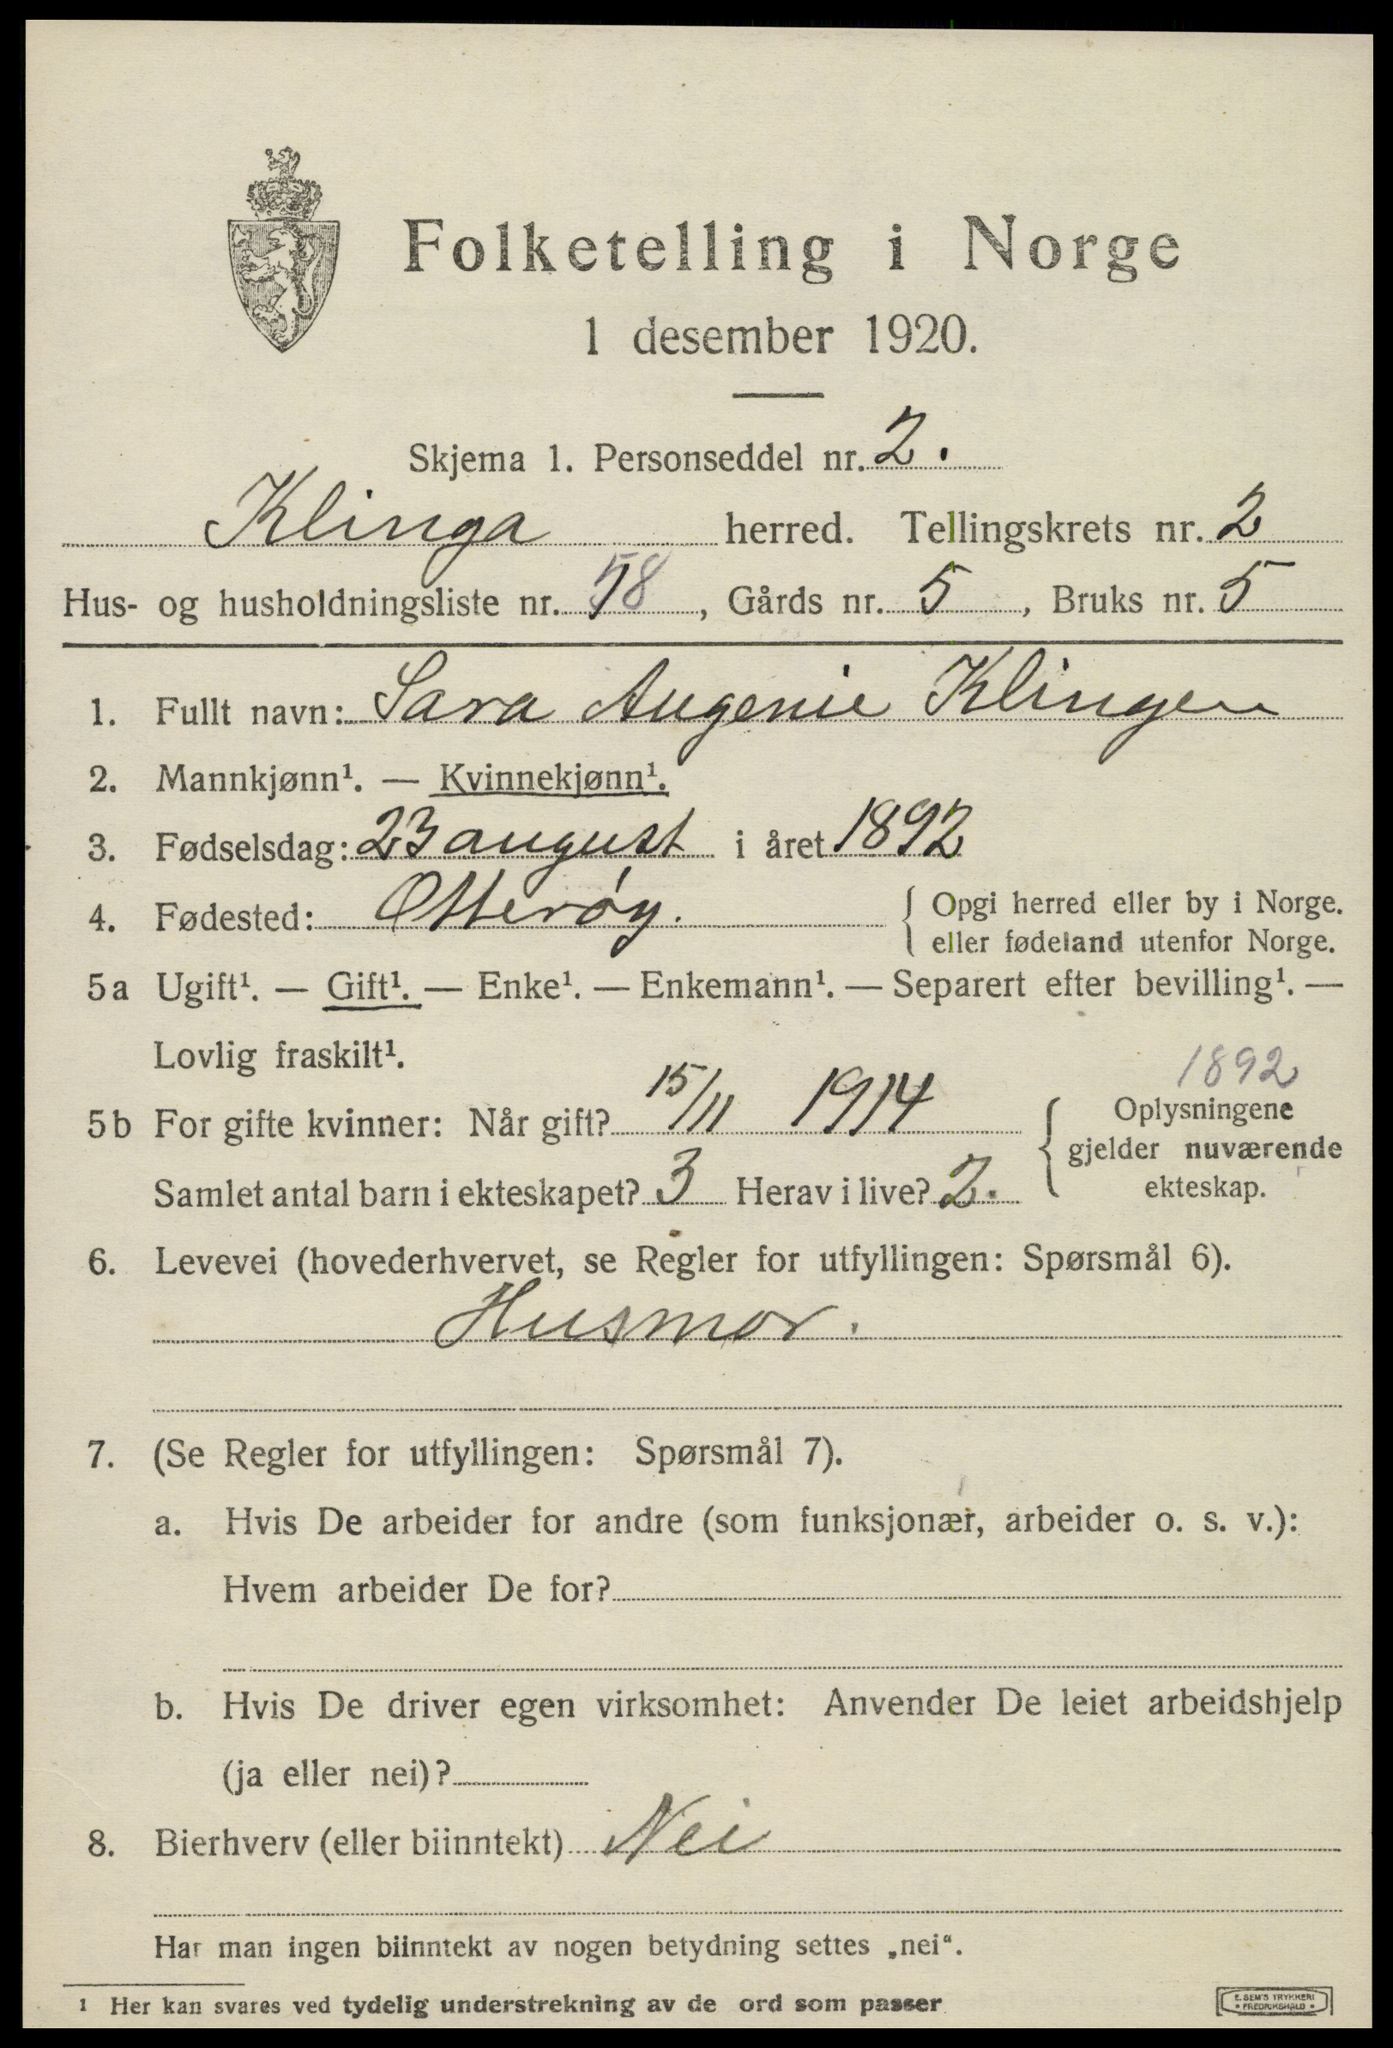 Folketelling i Norge
1 desember 1920.
Skjema 1. Personseddel nr. 2.
Klinga herred. Tellingskrets nr. 2
Hus- og husholdningsliste nr. 58, Gårds nr. 5, Bruks nr. 5
1. Fullt navn: Sara Augenie Klingen
2. Mannkjønn¹. — Kvinnekjønn¹.
3. Fødselsdag: 23 august i året 1892
4. Fødested: Otterøy. { Opgi herred eller by i Norge.
eller fødeland utenfor Norge.
5a Ugift¹. — Gift¹. — Enke¹. — Enkemann¹. — Separert efter bevilling¹. —
Lovlig fraskilt¹.
1892
5b For gifte kvinner: Når gift? 15/11 1914 { Oplysningene
gjelder nuværende
ekteskap.
Samlet antal barn i ekteskapet? 3 Herav i live? 2.
6. Levevei (hovederhvervet, se Regler for utfyllingen: Spørsmål 6).
Husmor.
7. (Se Regler for utfyllingen: Spørsmål 7).
a. Hvis De arbeider for andre (som funksjonær, arbeider o. s. v.):
Hvem arbeider De for?
b. Hvis De driver egen virksomhet: Anvender De leiet arbeidshjelp
(ja eller nei)?
8. Bierhverv (eller biinntekt) Nei
Har man ingen biinntekt av nogen betydning settes „nei“.
1 Her kan svares ved tydelig understrekning av de ord som passer
E. SEM'S TRYKKERI
• FREDRIKSHALD •